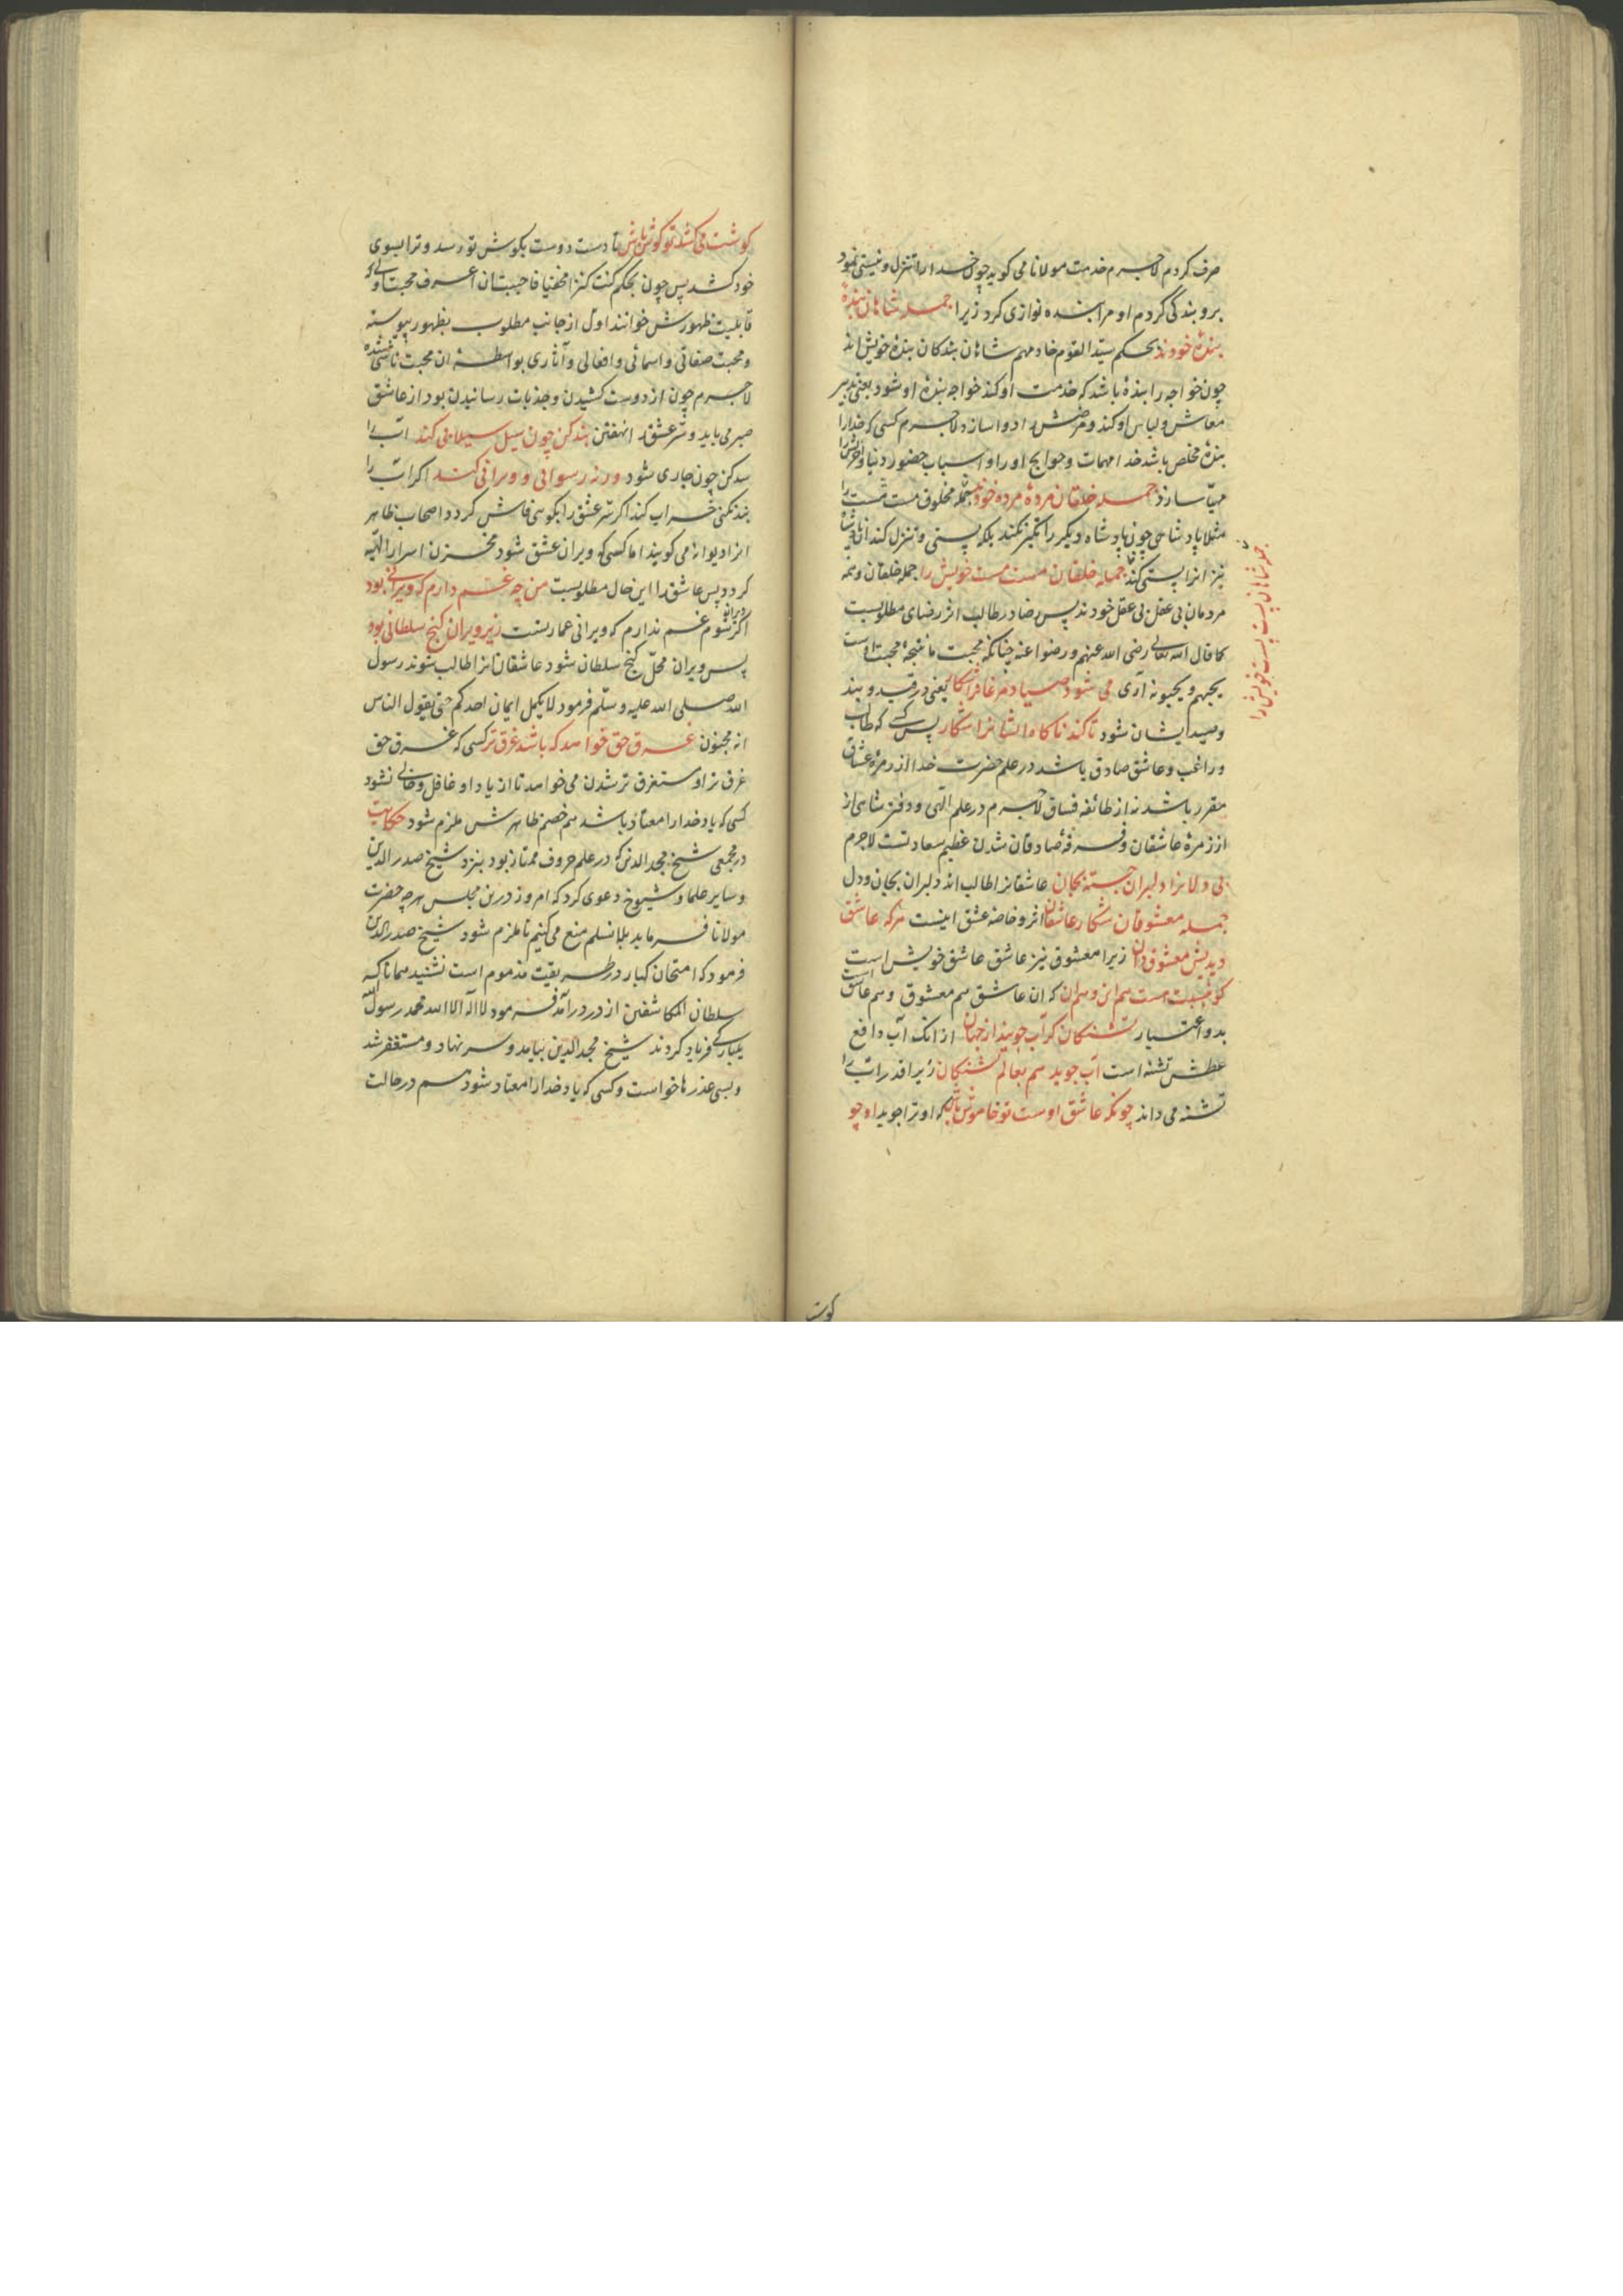 صرف کردم لاجرم خدمت مولانا می کوید چون خدا را تنزل و نیستی نمود
برو بندکی کردم او مرا بنده نوازی کرد زیرا جمله شاهان بندهٔ
بندهٔ خودند بحکم سید القوم خادمهم شاهان بندکان بندهٔ خویش اند
چون خواجه را بندهٔ باشد که خدمت او کند خواجه بندهٔ او شود یعنی تدبیر
معاش و لباس او کند و مرضش را دوا سازد لاجرم کسی که خدا را
بندهٔ مخلص باشد خدا مهمات و حوایج او را و اسباب حضور دنیا و آخرتش را
مهیا سازد جمله خلقان مردهٔ مردهٔ خودند جمله مخلوق مست مست را
مثلا پادشاهی چون پادشاه دیکر را تکبر نکند بلکه پستی و تنزل کند ان پادشاه
نیز انرا پستی کند جمله خلقان مست مست خویش را جمله خلقان و همه
جمله شاهان پست پست خویش را
مردمان بی عقل بی عقل خودند پس رضا در طالب اثر رضای مطلوبست
کما قال الله تعالی رضی الله عنهم و رضوا عنه چنانکه محبت ما نتیجهٔ محبت اوست
یحبهم و یحبونه آری می شود صیاد مرغانرا شکار یعنی در قید و بند
و صید ایشان شود تا کند ناکاه ایشانرا شکار پس کسی که طالب
و راغب و عاشق صادق باشد در علم حضرت خدا از زمرهٔ عشاق
مقرر باشد نه از طائفه فساق لاجرم در علم الهی و دفتر شاهی از
از زمرهٔ عاشقان و فرقهٔ صادقان شدن عظیم سعادتست لاجرم
بی دلانرا دلبران جسته بجان عاشقانرا طالب اند دلبران بجان و دل
جمله معشوقان شکار عاشقان اثر و خاصهٔ عشق اینست هرکه عاشق
دیدیش معشوق دان زیرا معشوق نیز عاشق عاشق خویش است
کو بنسبت هست هم این و هم آن که ان عاشق هم معشوق و هم عاشق است
بدو اعتبار تشنکان کر آب جویند از جهان از انک آب دافع
عطش تشنه است آب جوید هم بعالم تشنکان زیرا قدر آب را
تشنه می داند چونکه عاشق اوست تو خاموش باش که او ترا جوید او چو
کوشت
کوشت می کشد تو کوش باش تا دست دوست بکوش تو رسد و ترا بسوی
خود کشد پس چون بحکم کنت کنزا مخفیا فاحببت ان اعرف محبت اولی که
قابلیت ظهورش خوانند اول از جانب مطلوب بظهور پیوسته
و محبت صفاتی و اسمائی و افعالی و آثاری بواسطهٔ ان محبت ناشی شده
لاجرم چون از دوست کشیدن و جذبات رسانیدن بود از عاشق
صبر می باید و سر عشق را نهفتن بند کن چون سیل سیلابی کند آب را
سد کن چون جاری شود ورنه رسوایی و ویرانی کند اکر آب را
بند نکنی خراب کند اکر سر عشق را بکویی فاش کردد و اصحاب ظاهر
انرا دیوانه می کویند اما کسی که ویران عشق شود مخزن اسرار الهیه
کردد پس عاشق را این حال مطلوبست من چه غم دارم که ویرانی بود
اکر ویرانه شوم غم ندارم که ویرانی عمارتست زیر ویران کنج سلطانی بود
پس ویران محل کنج سلطان شود عاشقان انرا طالب شوند رسول
الله صلی الله علیه و سلم فرمود لا یکمل ایمان احدکم حتی یقول الناس
انه مجنون غرق حق خواهد که باشد غرق تر کسی که غرق حق
غرق تر او مستغرق تر شدن می خواهد تا از یاد او غافل و خالی نشود
کسی که یاد خدا را معتاد باشد هم خصم ظاهرش ملزم شود حکایت
در مجمعی شیخ مجد الدین که در علم حروف ممتاز بود بنزد شیخ صدر الدین
و سایر علما و شیوخ دعوی کرد که امروز درین مجلس هرچه حضرت
مولانا فرماید بلا نسلم منع می کنیم تا ملزم شود شیخ صدر الدین
فرمود که امتحان کبار در طریقت مذموم است نشنید همانا که
سلطان المکاشفین از در درآمد فرمود لا اله الا الله محمد رسول الله
یکبارکی فریاد کردند شیخ مجد الدین بیامد و سر نهاد و مستغفر شد
و بسی عذرها خواست و کسی که یاد خدا را معتاد شود هم در حالت